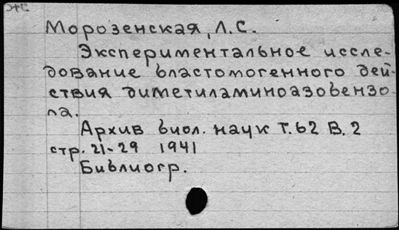 Морозенская, Л.С.
Экспериментальное иссле-
дование бластомогенного дей-
ствия диметиламиноазобензо
ла.
Архив биол. наук Т.62 В.2
стр. 21-29 1941
Библиогр.